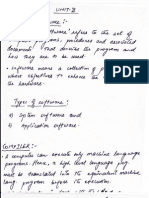 UNIT-I
software :-
software refers to the set of
programs, procedures and associated
documents that describe the programs and
how they are to be used
- software means a collection of
whose objective is to enhance the
the hardware.
Types of software :-
a) System software and
b) Application software
COMPILER :-
A computer can execute only machine language
programs. Hence, a high level language prog
must be translated into its equivalent machine
lang program before its execution.